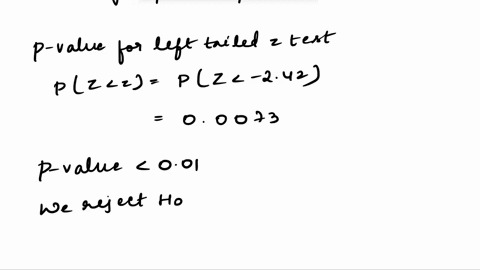 p-value for left tailed z test
P(Z<z) = P(Z<-2.42)
= 0.0073
p-value < 0.01
We reject Ho